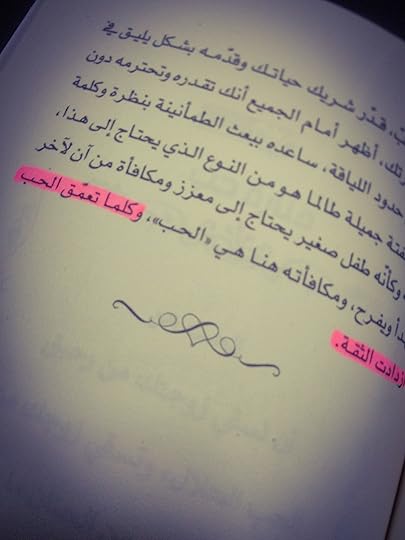 قدّر شريك حياتك وقدّمه بشكل يليق في
أظهر أمام الجميع أنك تقدره وتحترمه دون
حدود اللباقة، ساعده ببعث الطمأنينة بنظرة وكلمة
جميلة طالما هو من النوع الذي يحتاج إلى هذا،
وكأنه طفل صغير يحتاج إلى معزز ومكافأة من آن لآخر
ويفرح، ومكافأته هنا هي «الحب»، وكلما تعمّق الحب
ازدادت الثقة.